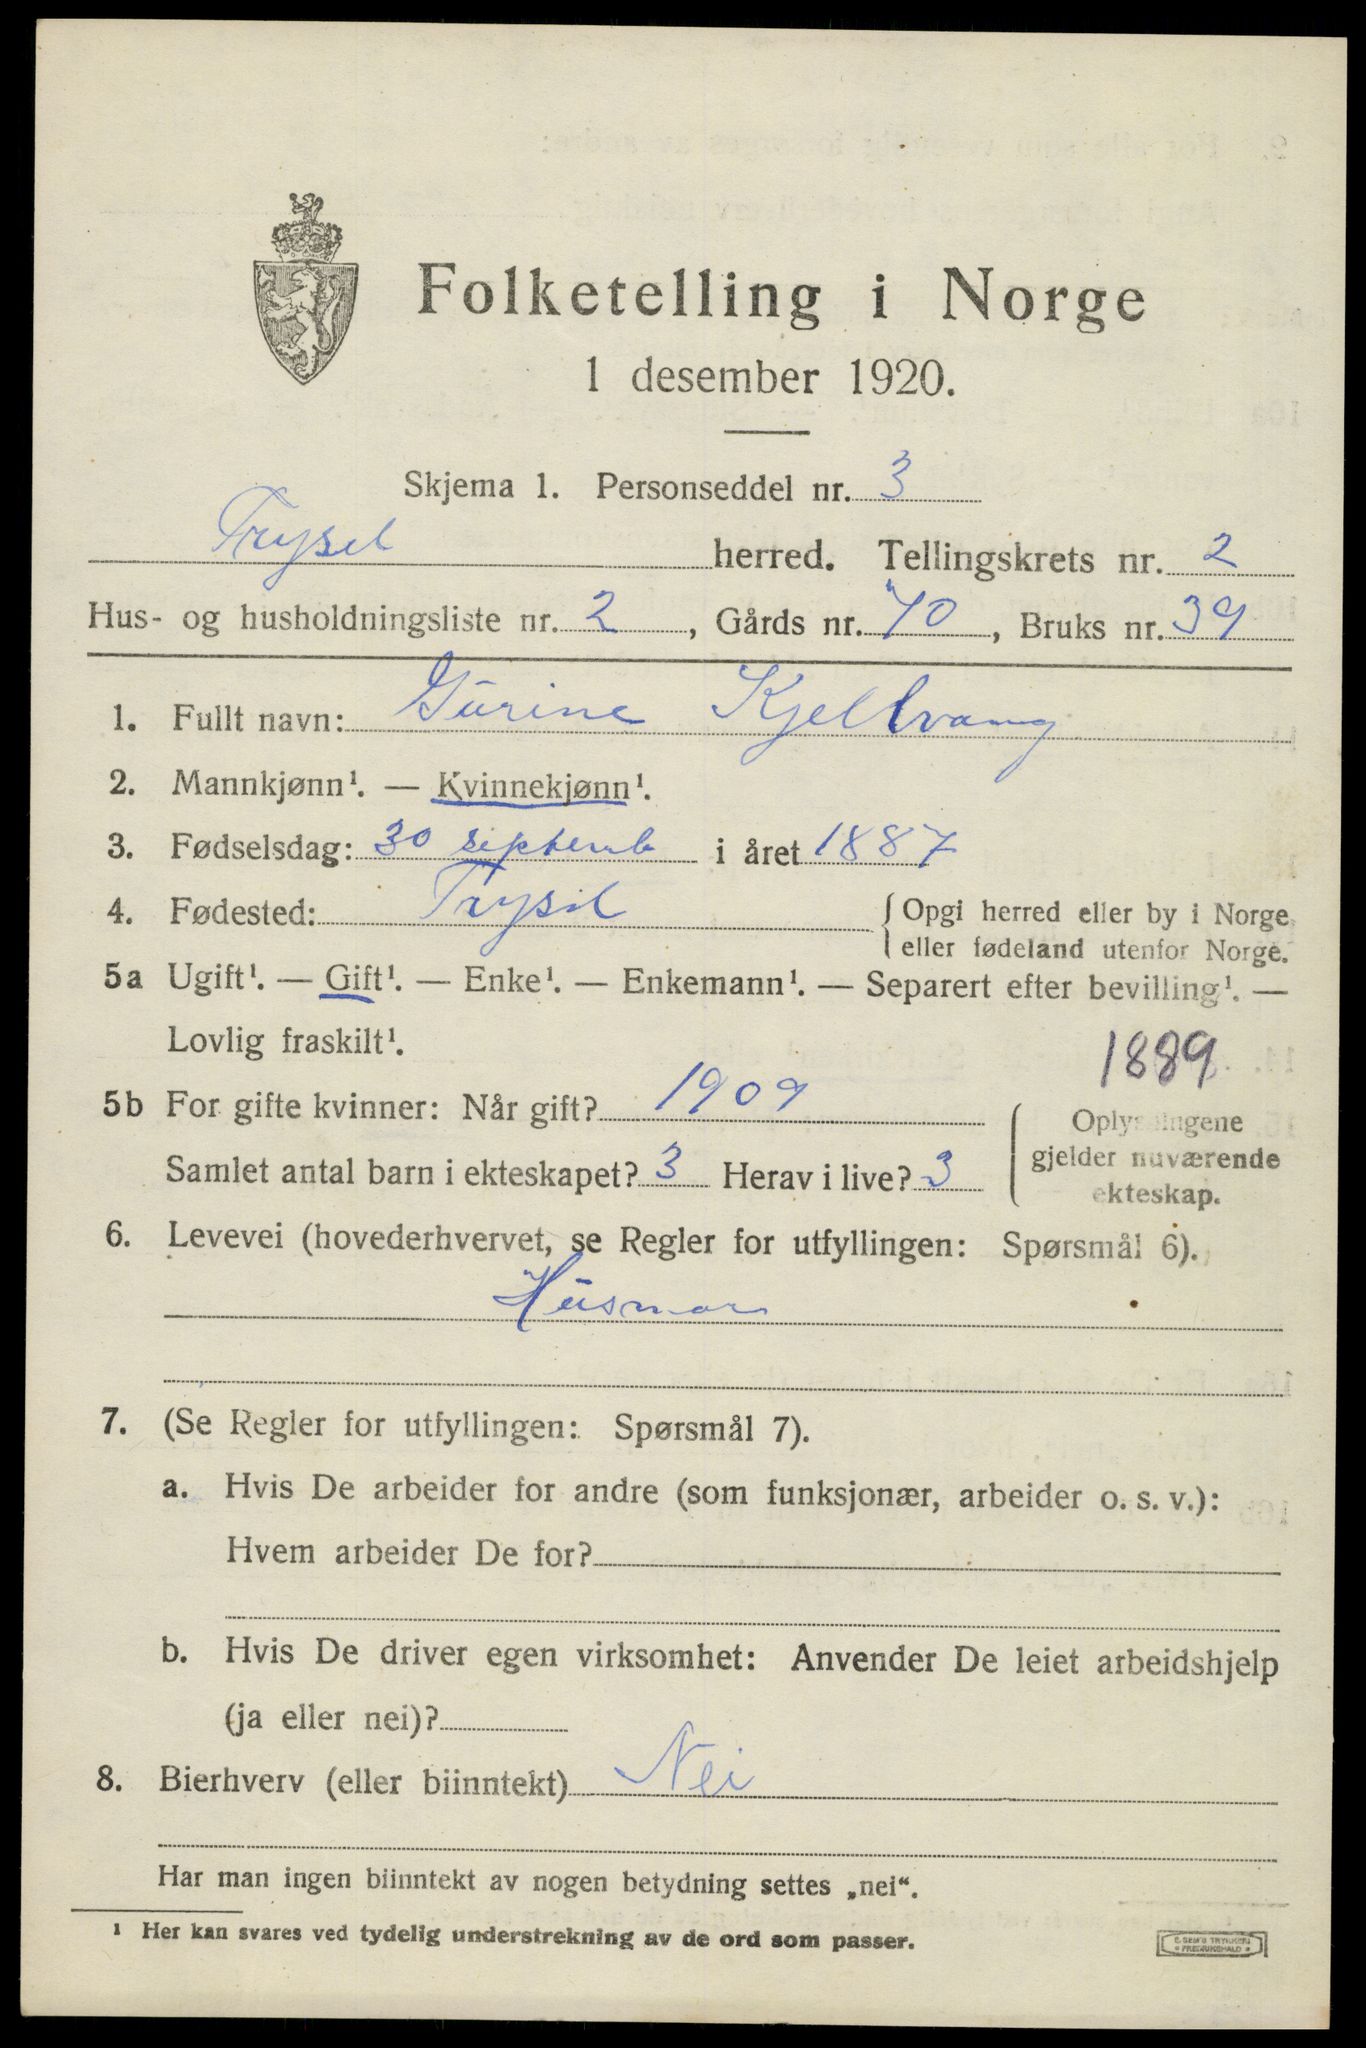 Folketelling i Norge
1 desember 1920.
Skjema 1. Personseddel nr. 3
Trysil herred. Tellingskrets nr. 2
Hus- og husholdningsliste nr. 2, Gårds nr. 70, Bruks nr. 39
1. Fullt navn: Gurine Kjellvang
2. Mannkjønn¹. — Kvinnekjønn¹.
3. Fødselsdag: 30 septemb i året 1887
4. Fødested: Trysil { Opgi herred eller by i Norge
eller fødeland utenfor Norge.
5a Ugift¹. — Gift¹. — Enke¹. — Enkemann¹. — Separert efter bevilling¹. —
Lovlig fraskilt¹.
1889
5b For gifte kvinner: Når gift? 1909
Samlet antal barn i ekteskapet? 3 Herav i live? 3
Oplysningene
gjelder nuværende
ekteskap.
6. Levevei (hovederhvervet, se Regler for utfyllingen: Spørsmål 6).
Husmor
7. (Se Regler for utfyllingen: Spørsmål 7).
a. Hvis De arbeider for andre (som funksjonær, arbeider o. s. v.):
Hvem arbeider De for?
b. Hvis De driver egen virksomhet: Anvender De leiet arbeidshjelp
(ja eller nei)?
8. Bierhverv (eller biinntekt) Nei
Har man ingen biinntekt av nogen betydning settes „nei“.
¹ Her kan svares ved tydelig understrekning av de ord som passer.
E. SEM'S TRYKKERI
FREDRIKSHALD